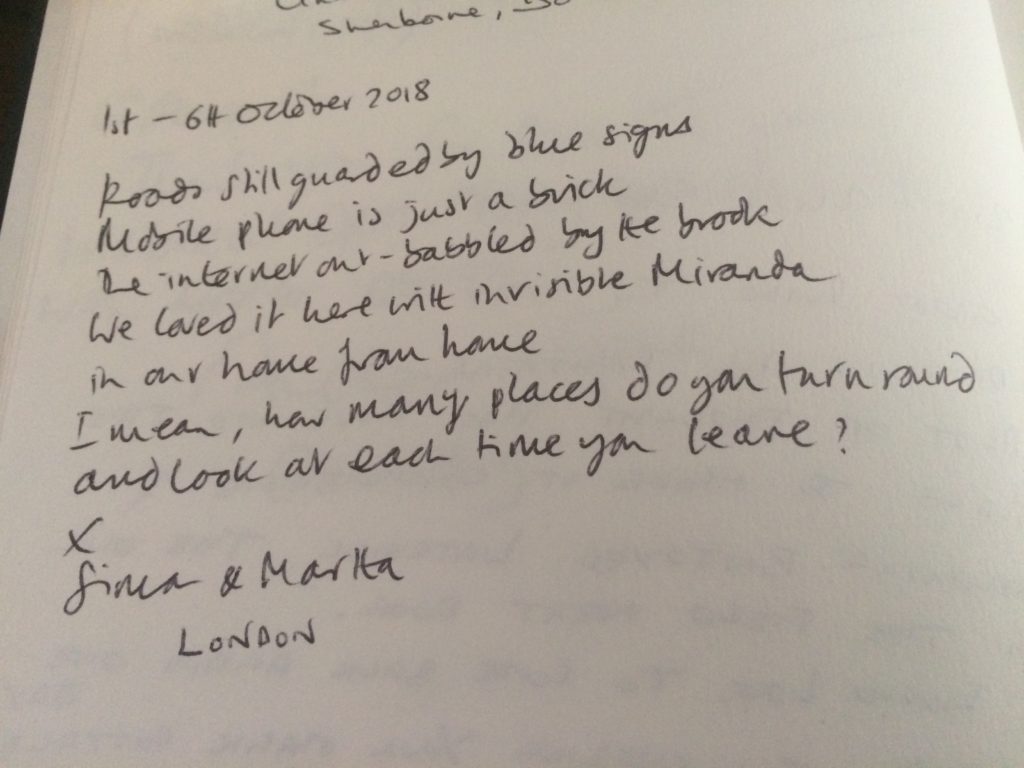 Sherborne,
1st - 6th October 2018
Roads still guarded by blue signs
Mobile phone is just a brick
The internet out-babbled by the brook
We loved it here with invisible Miranda
in our home from home
I mean, how many places do you turn round
and look at each time you leave?
x
& Martha
LONDON